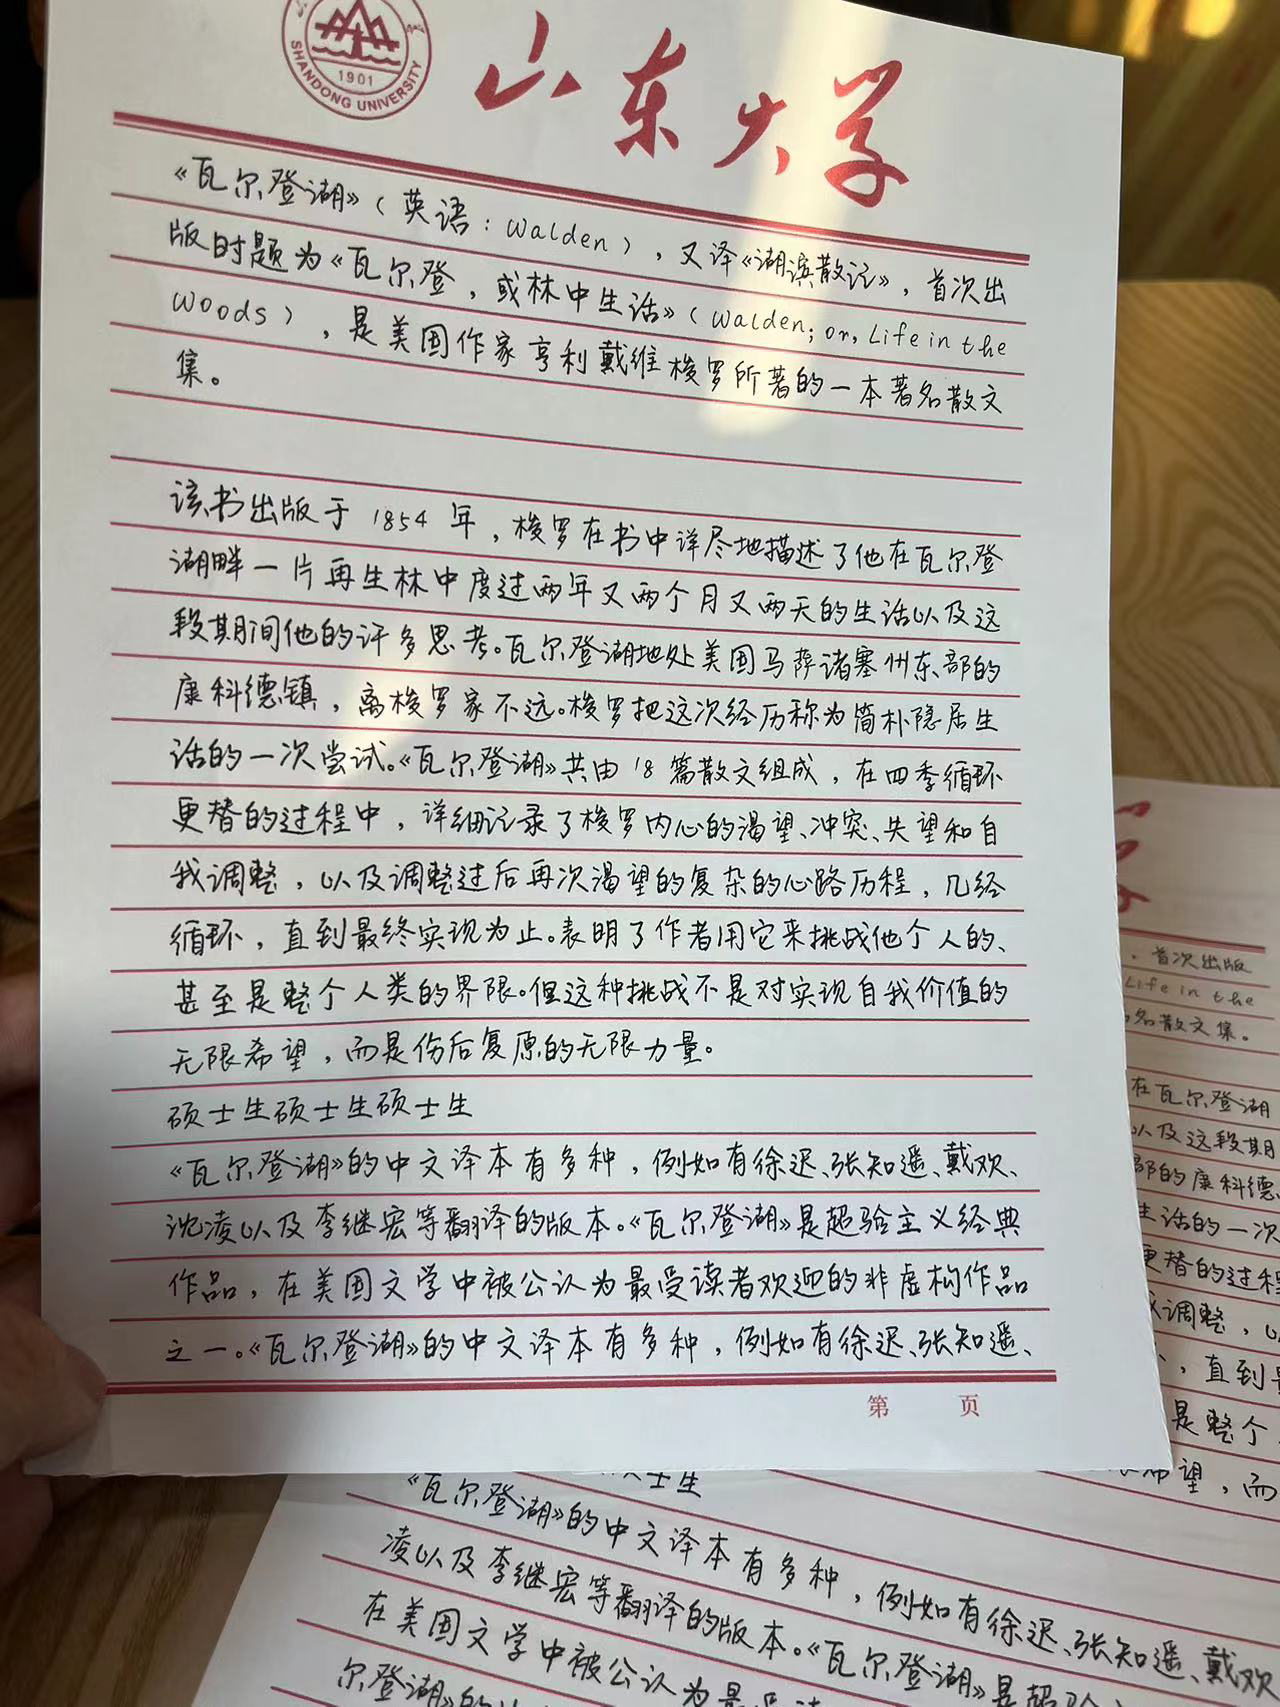 SHANDONG UNIVERSITY
1901
山东大学
《瓦尔登湖》（英语：Walden），又译《湖滨散记》，首次出
版时题为《瓦尔登，或林中生活》（Walden; or, Life in the
Woods），是美国作家亨利戴维梭罗所著的一本著名散文
集。
该书出版于1854年，梭罗在书中详尽地描述了他在瓦尔登
湖畔一片再生林中度过两年又两个月又两天的生活以及这
段期间他的许多思考。瓦尔登湖地处美国马萨诸塞州东部的
康科德镇，离梭罗家不远。梭罗把这次经历称为简朴隐居生
活的一次尝试。《瓦尔登湖》共由18篇散文组成，在四季循环
更替的过程中，详细记录了梭罗内心的渴望、冲突、失望和自
我调整，以及调整过后再次渴望的复杂的心路历程，几经
循环，直到最终实现为止。表明了作者用它来挑战他个人的、
甚至是整个人类的界限。但这种挑战不是对实现自我价值的
无限希望，而是伤后复原的无限力量。
硕士生硕士生硕士生
《瓦尔登湖》的中文译本有多种，例如有徐迟、张知遥、戴欢、
沈凌以及李继宏等翻译的版本。《瓦尔登湖》是超验主义经典
作品，在美国文学中被公认为最受读者欢迎的非虚构作品
之一。《瓦尔登湖》的中文译本有多种，例如有徐迟、张知遥、
第 页
，首次出版
Life in the
名散文集。
在瓦尔登湖
以及这段期
部的康科德
生活的一次
更替的过程
调整，以
，直到
是整个
希望，而
士生
《瓦尔登湖》的中文译本有多种，例如有徐迟、张知遥、戴欢
凌以及李继宏等翻译的版本。《瓦尔登湖》是超验
在美国文学中被公认为是
尔登湖》的